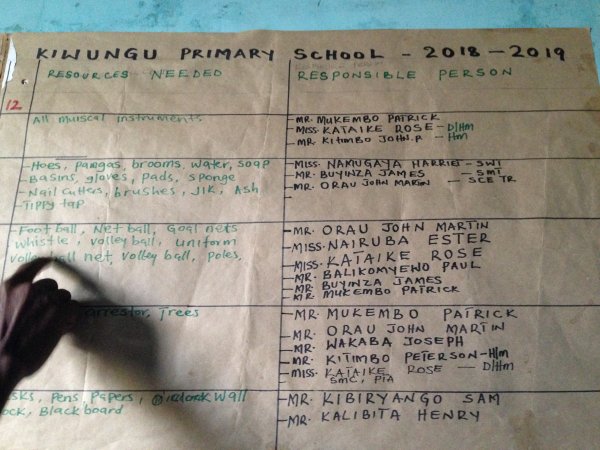 KIWUNGU PRIMARY SCHOOL - 2018-2019
RESOURCES NEEDED
RESPONSIBLE PERSON
12
All muiscal instruments
-MR. MUKEMBO PATRICK
-MISS. KATAIKE ROSE-D/Hm
-MR. KITIMBO JOHN.P - Hm
-Hoes, pangas, brooms, water, soap
-Basins, gloves, pads, sponge
-Nail cutters, brushes, JIK, Ash
-Tippy tap
-MISS. NAMUGAYA HARRIET-SWT
-MR. BUYINZA JAMES - SMT
-MR. ORAU JOHN MARTIN - SCE TR
-Foot ball, Net ball, Goal nets
whistle, volley ball, uniform
volley ball net, volley ball, poles,
-MR. ORAU JOHN MARTIN
-MISS. NAIRUBA ESTER
-MISS. KATAIKE ROSE
-MR. BALIKOMYEWO PAUL
-MR. BUYINZA JAMES
-MR. MUKEMBO PATRICK
arrestor, Trees
-MR. MUKEMBO PATRICK
-MR. ORAU JOHN MARTIN
-MR. WAKABA JOSEPH
-MR. KITIMBO PETERSON-Hm
-MISS. KATAIKE ROSE - D/Hm
SMC, PTA
Pens, Papers, clock Wall
Blackboard
-MR. KIBIRYANGO SAM
-MR. KALIBITA HENRY